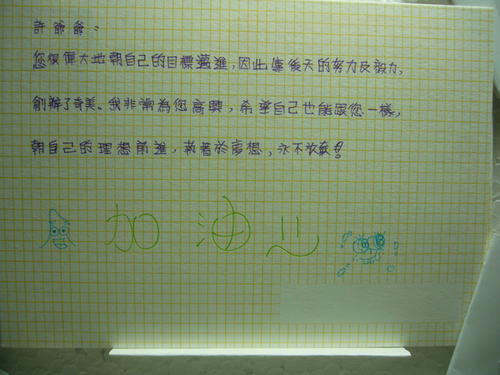 許爺爺：
您很偉大地朝自己的目標邁進，因此靠後天的努力及毅力，
創辦了奇美。我非常為您高興，希望自己也能跟您一樣，
朝自己的理想前進，執著於夢想，永不放棄！
加油